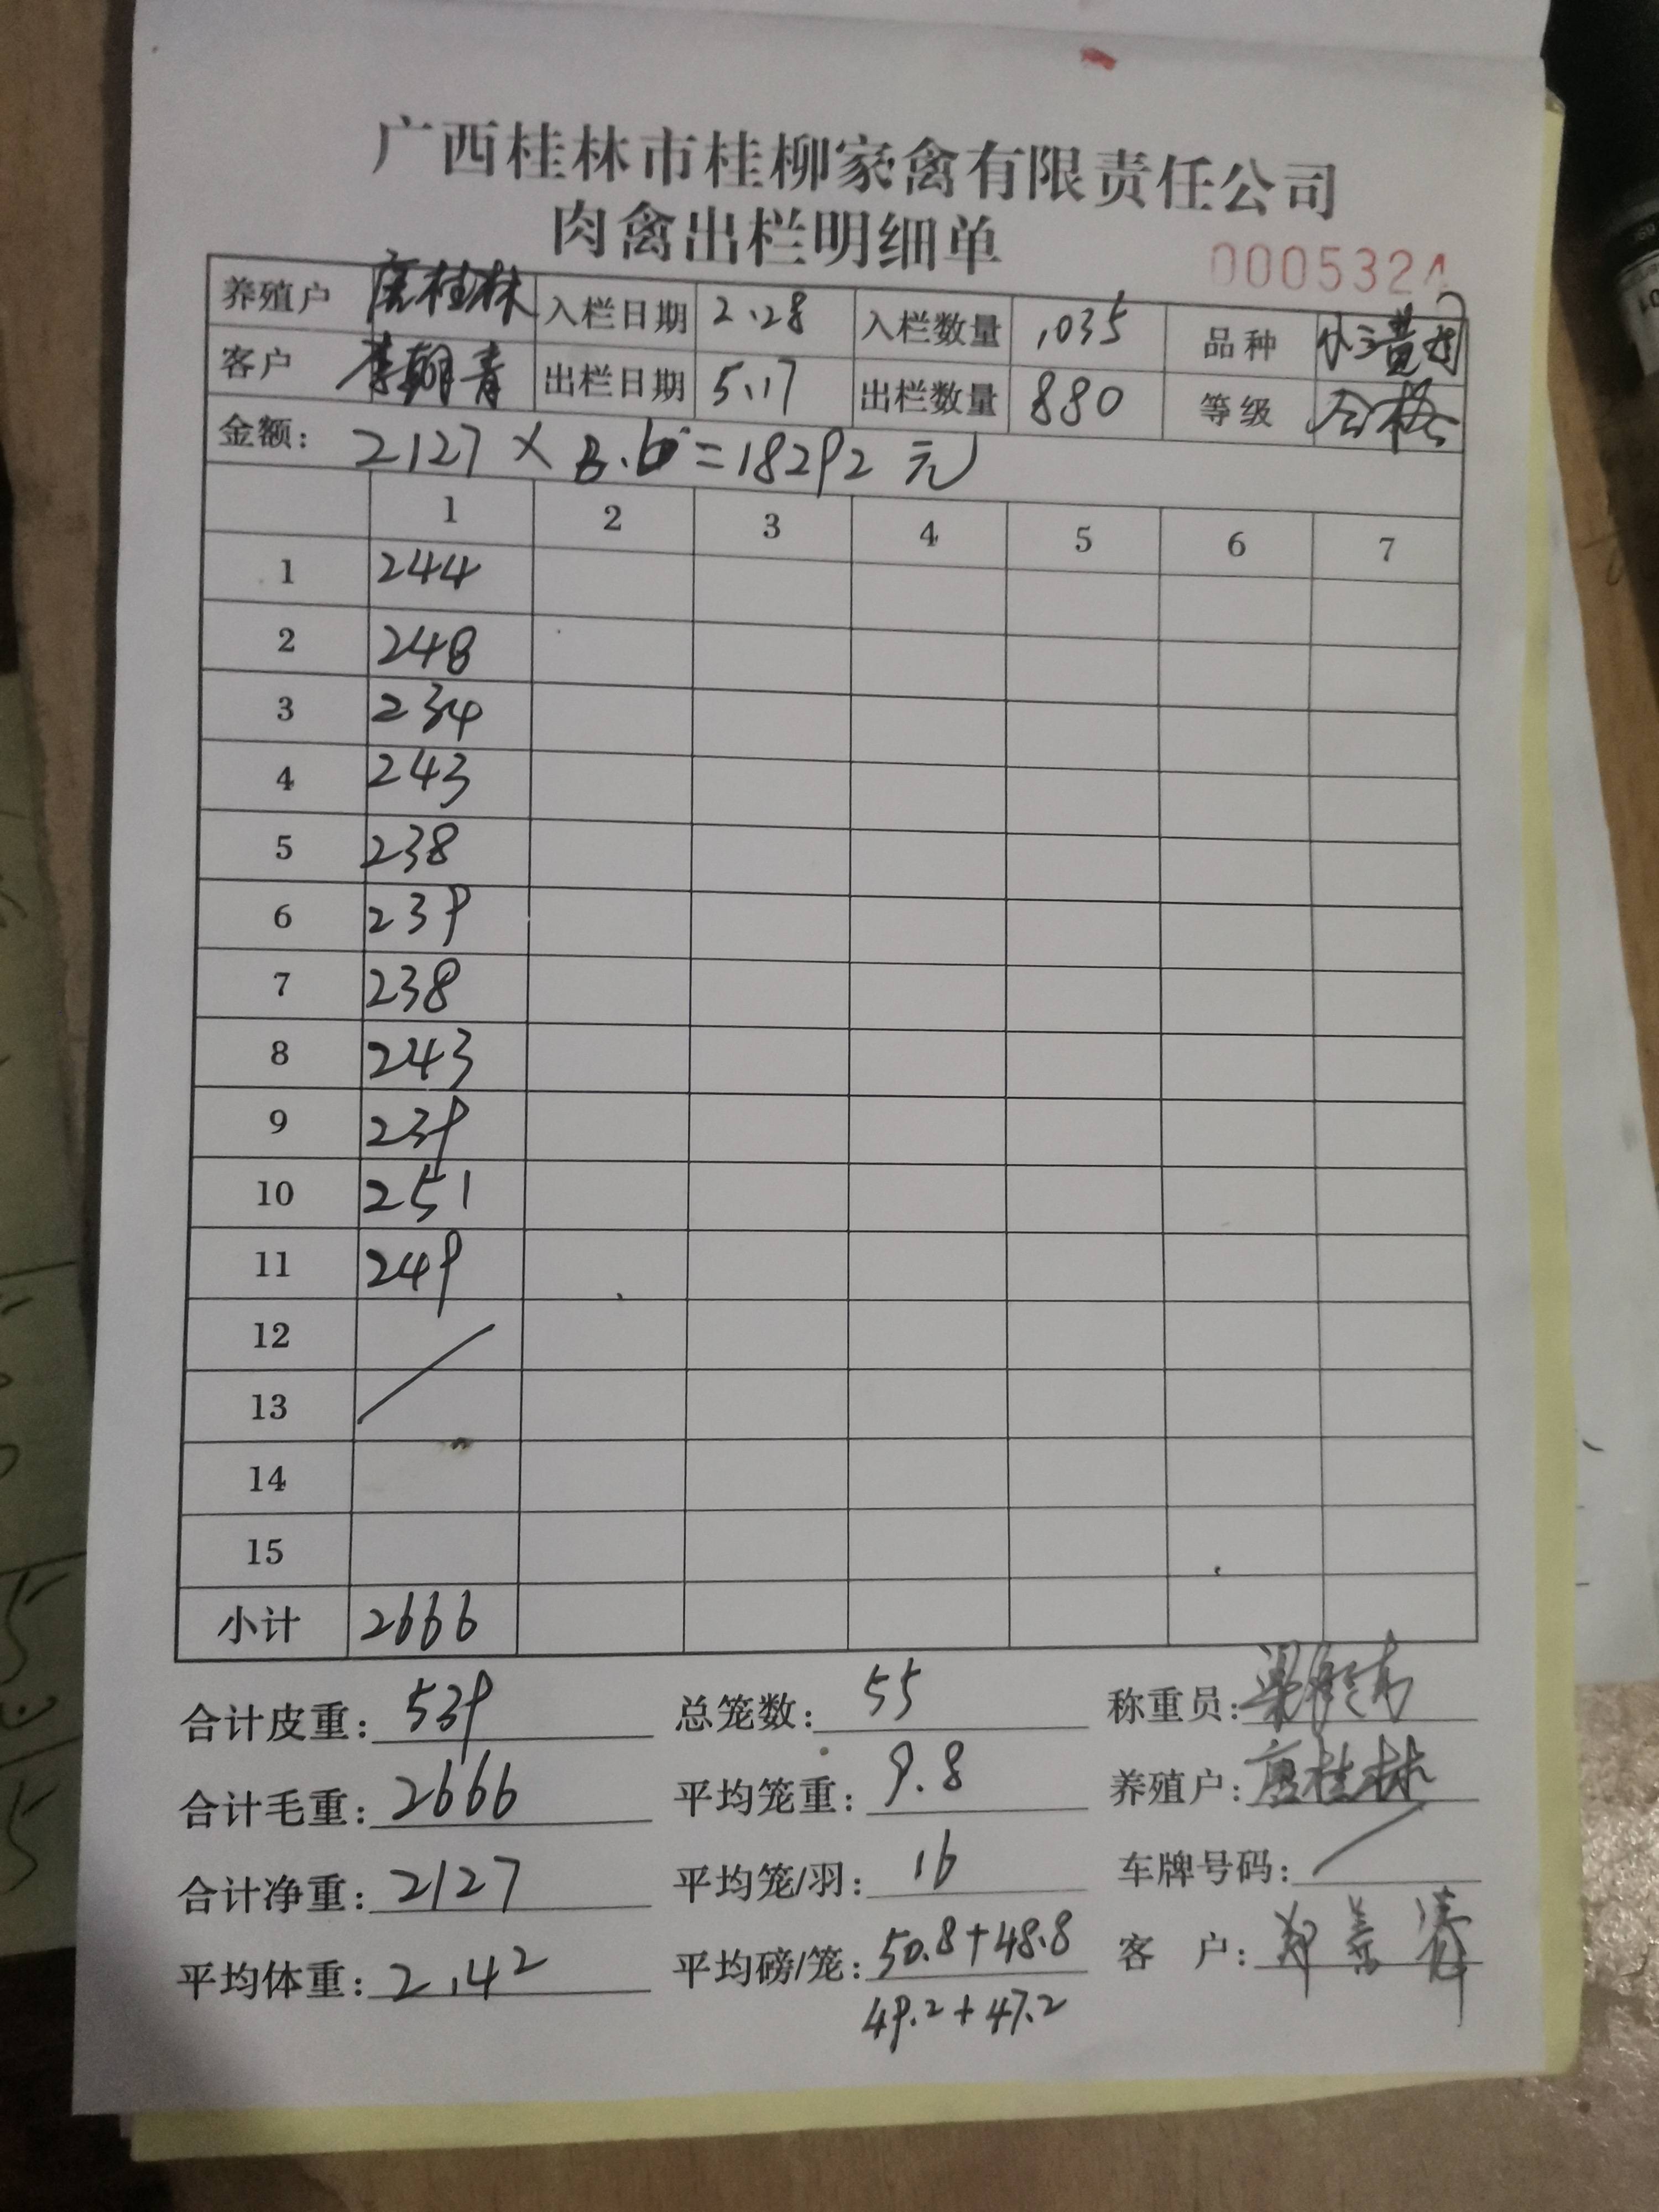 广西桂林市桂柳家禽有限责任公司
肉禽出栏明细单
0005324
养殖户 唐桂林 入栏日期 2.28 入栏数量 1035 品种
客户 李朝青 出栏日期 5.17 出栏数量 880 等级 合格
金额: 2127 × 8.6 = 18292 元
1 2 3 4 5 6 7
1 244
2 248
3 234
4 243
5 238
6 239
7 238
8 243
9 239
10 251
11 249
12
13
14
15
小计 2666
合计皮重: 539 总笼数: 55 称重员:
合计毛重: 2666 平均笼重: 9.8 养殖户: 唐桂林
合计净重: 2127 平均笼/羽: 16 车牌号码: /
平均体重: 2.42 平均磅/笼: 50.8+48.8 客 户:
49.2+47.2